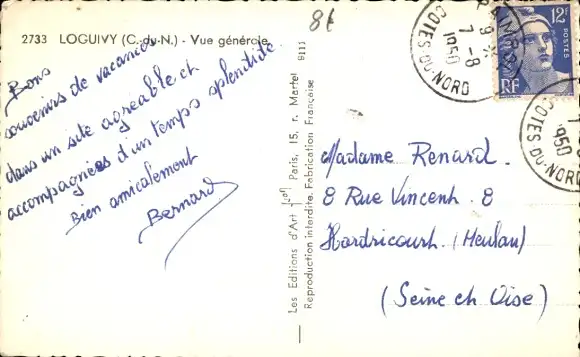 2733 LOGUIVY (C.-du-N.) - Vue générale
Bons
souvenirs de vacances
dans un site agréable et
accompagnées d'un temps splendide
Bien amicalement
Bernard
Les Editions d'Art Paris, 15, r. Martel
Reproduction interdite. Fabrication Française 9111
86
PAIMPOL
9 H
7-8
1950
COTES-DU-NORD
12F
POSTES
RF
1950
COTES-DU-NORD
Madame Renard.
8 Rue Vincent. 8
Hardricourt (Meulan)
(Seine et Oise)